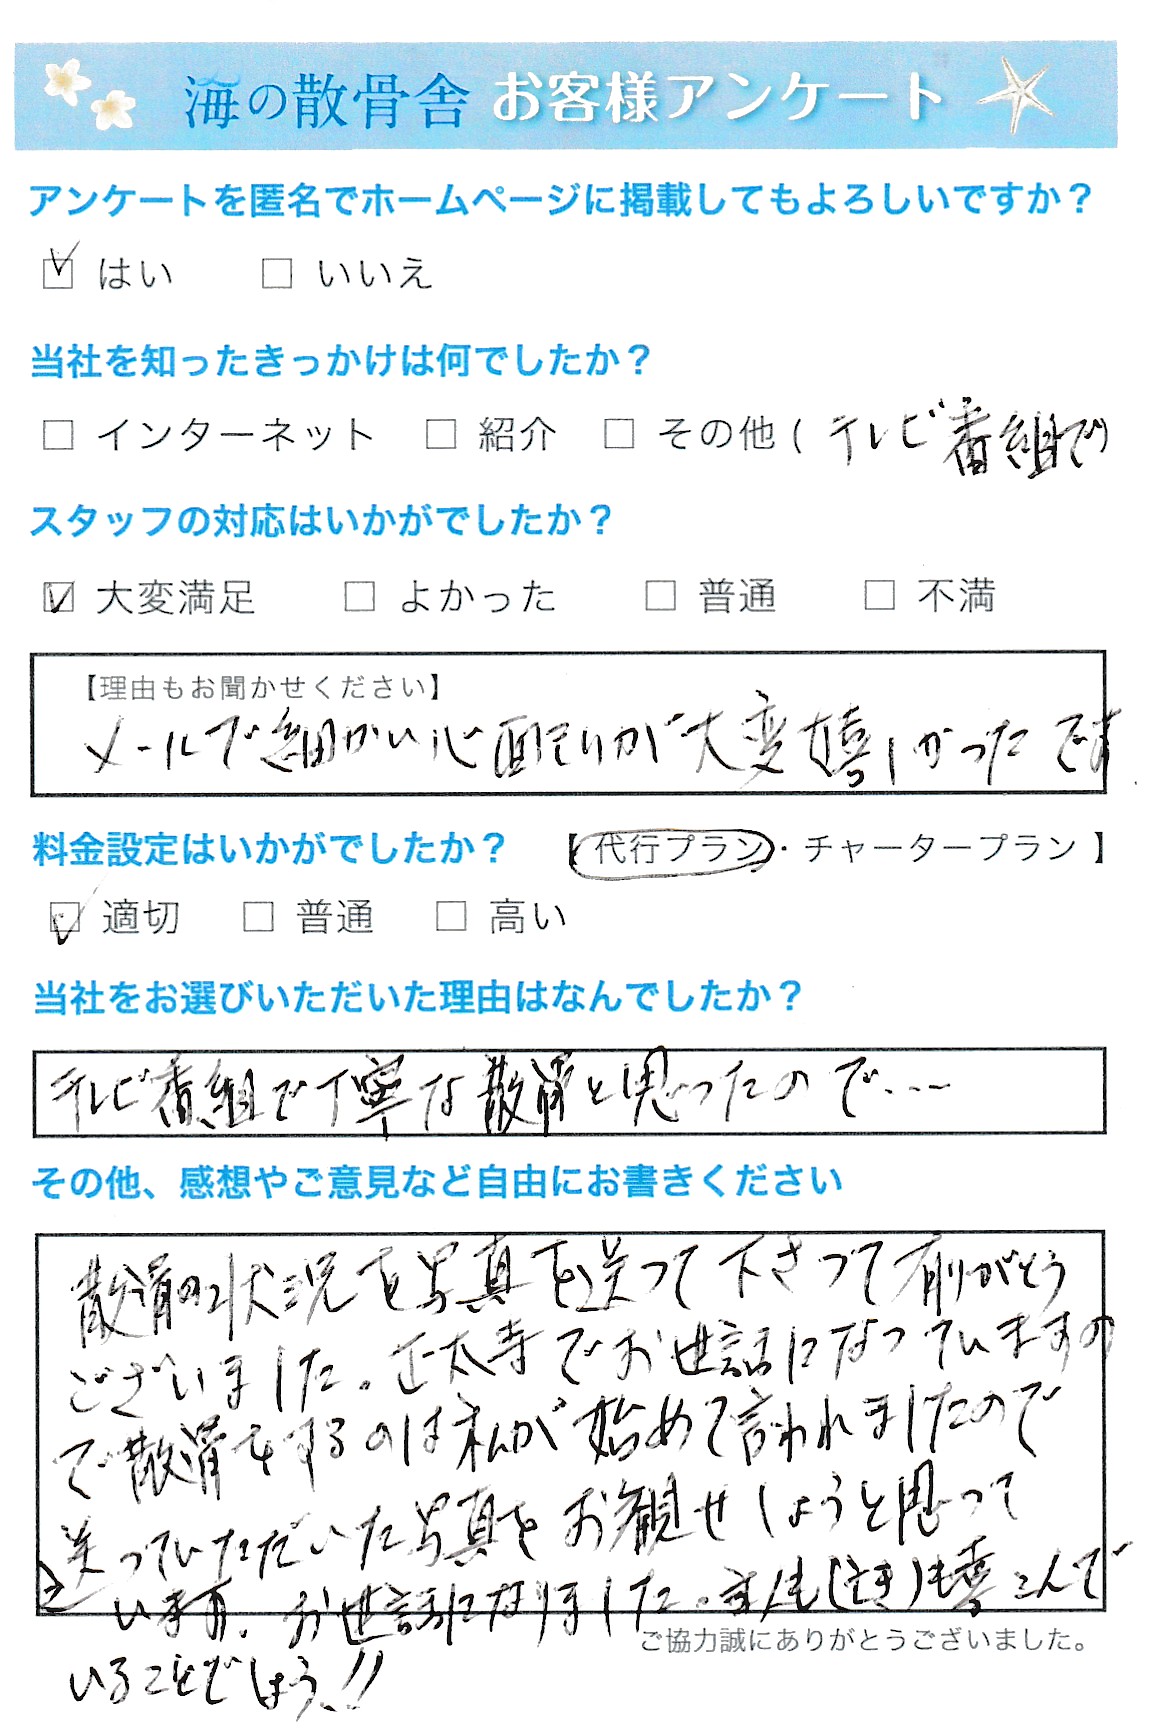 海の散骨舎 お客様アンケート
アンケートを匿名でホームページに掲載してもよろしいですか？
☑ はい □ いいえ
当社を知ったきっかけは何でしたか？
□ インターネット □ 紹介 □ その他 ( テレビ番組で)
スタッフの対応はいかがでしたか？
☑ 大変満足 □ よかった □ 普通 □ 不満
【理由もお聞かせください】
メールで細かい心配りが大変嬉しかったです
料金設定はいかがでしたか？ 【代行プラン・チャータープラン】
☑ 適切 □ 普通 □ 高い
当社をお選びいただいた理由はなんでしたか？
テレビ番組で丁寧な散骨と思ったので...
その他、感想やご意見など自由にお書きください
散骨の状況を写真を送って下さって有りがとう
ございました。正太寺でお世話になっていますの
で散骨をするのは私が始めて言われましたので
送っていただいた写真をお観せしようと思って
います。お世話になりました。主人も(亡き)も喜こんで
いることでしょう!!
ご協力誠にありがとうございました。